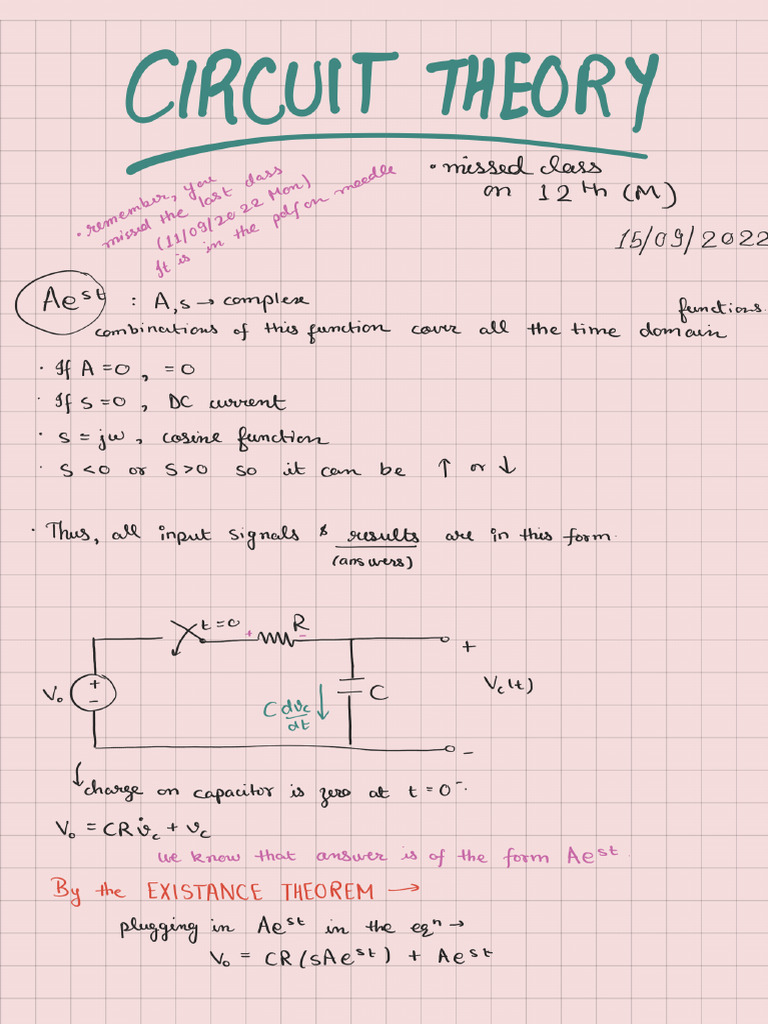 CIRCUIT THEORY
• missed class
on 12th (M)
• remember, you
missed the last class
(11/09/2022 Mon)
It is in the pdf on moodle
15/09/2022
Ae^st : A, s → complex
functions.
combinations of this function cover all the time domain
• If A = 0, = 0
• If s = 0, DC current
• s = jω, cosine function
• s < 0 or s > 0 so it can be ↑ or ↓
• Thus, all input signals & results are in this form.
(answers)
t = 0
+ R -
V₀ + -
C dv_c/dt ↓
C
+
V_c(t)
-
↳ charge on capacitor is zero at t = 0⁻.
V₀ = CR v̇_c + v_c
we know that answer is of the form Ae^st.
By the EXISTANCE THEOREM →
plugging in Ae^st in the eqⁿ →
V₀ = CR (sAe^st) + Ae^st